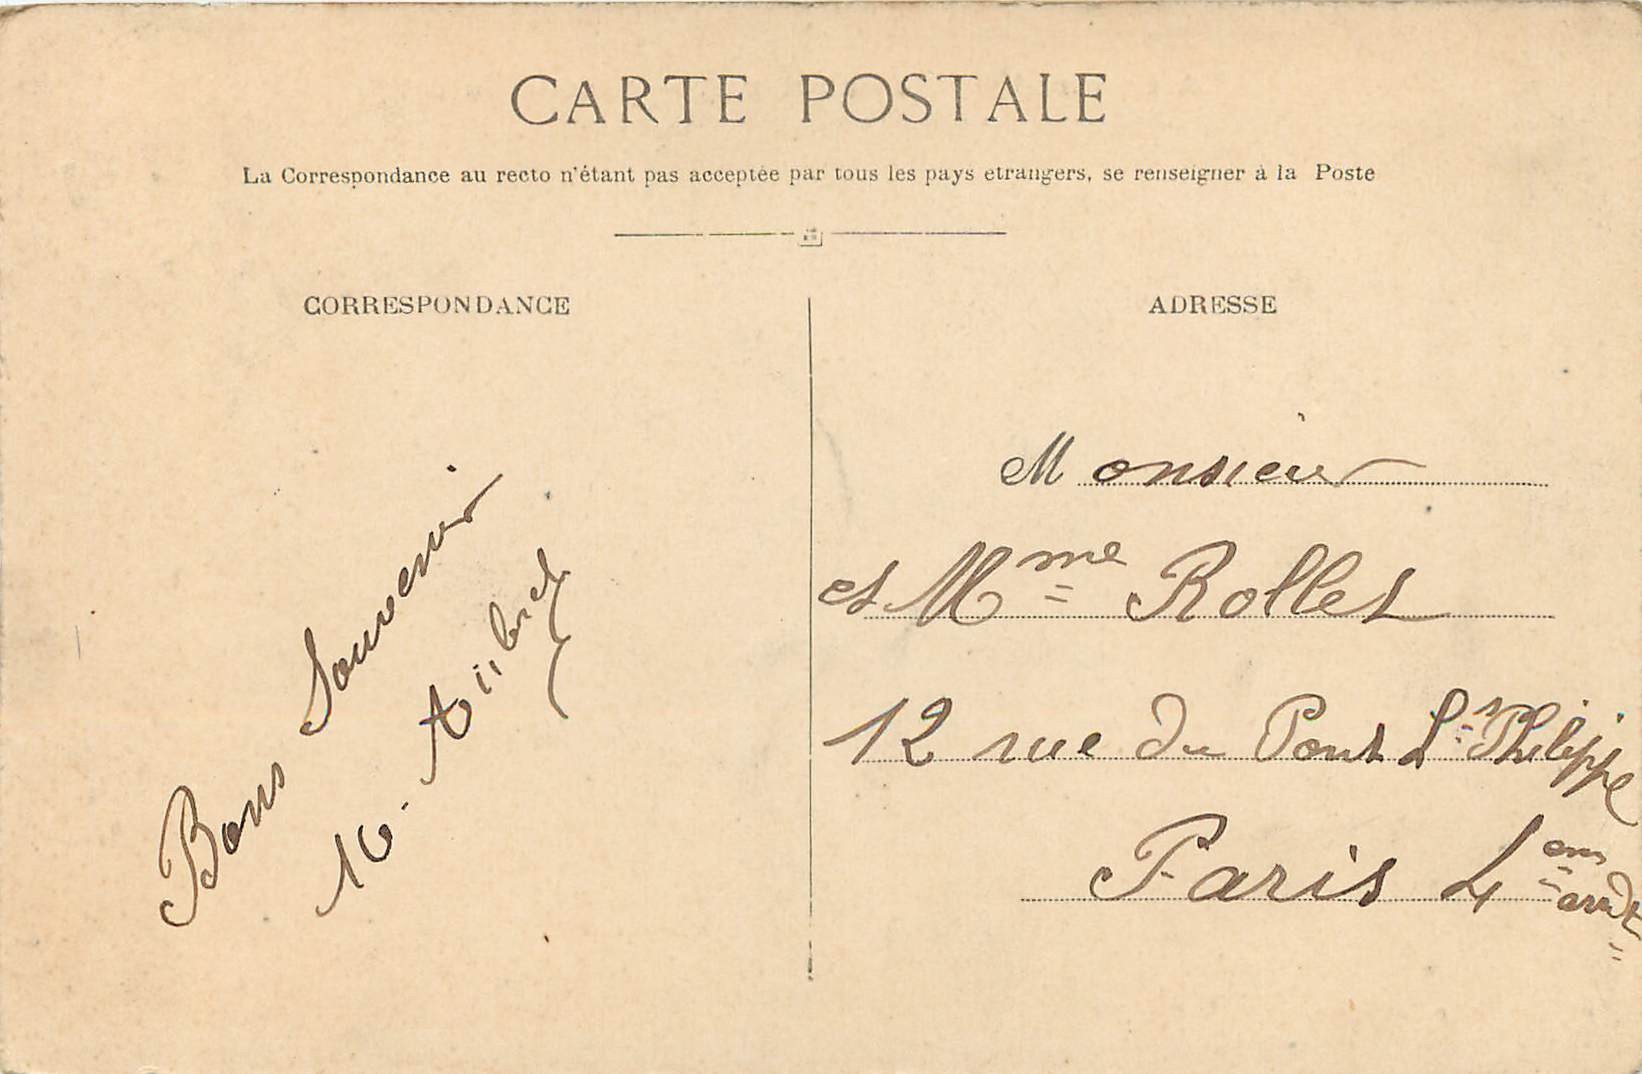 CARTE POSTALE
La Correspondance au recto n'étant pas acceptée par tous les pays etrangers, se renseigner à la Poste
CORRESPONDANCE
Bons Souvenir
ADRESSE
Monsieur
et Mme Rollet
12 rue du Pont Ls Philippe
Paris 4em arrdt